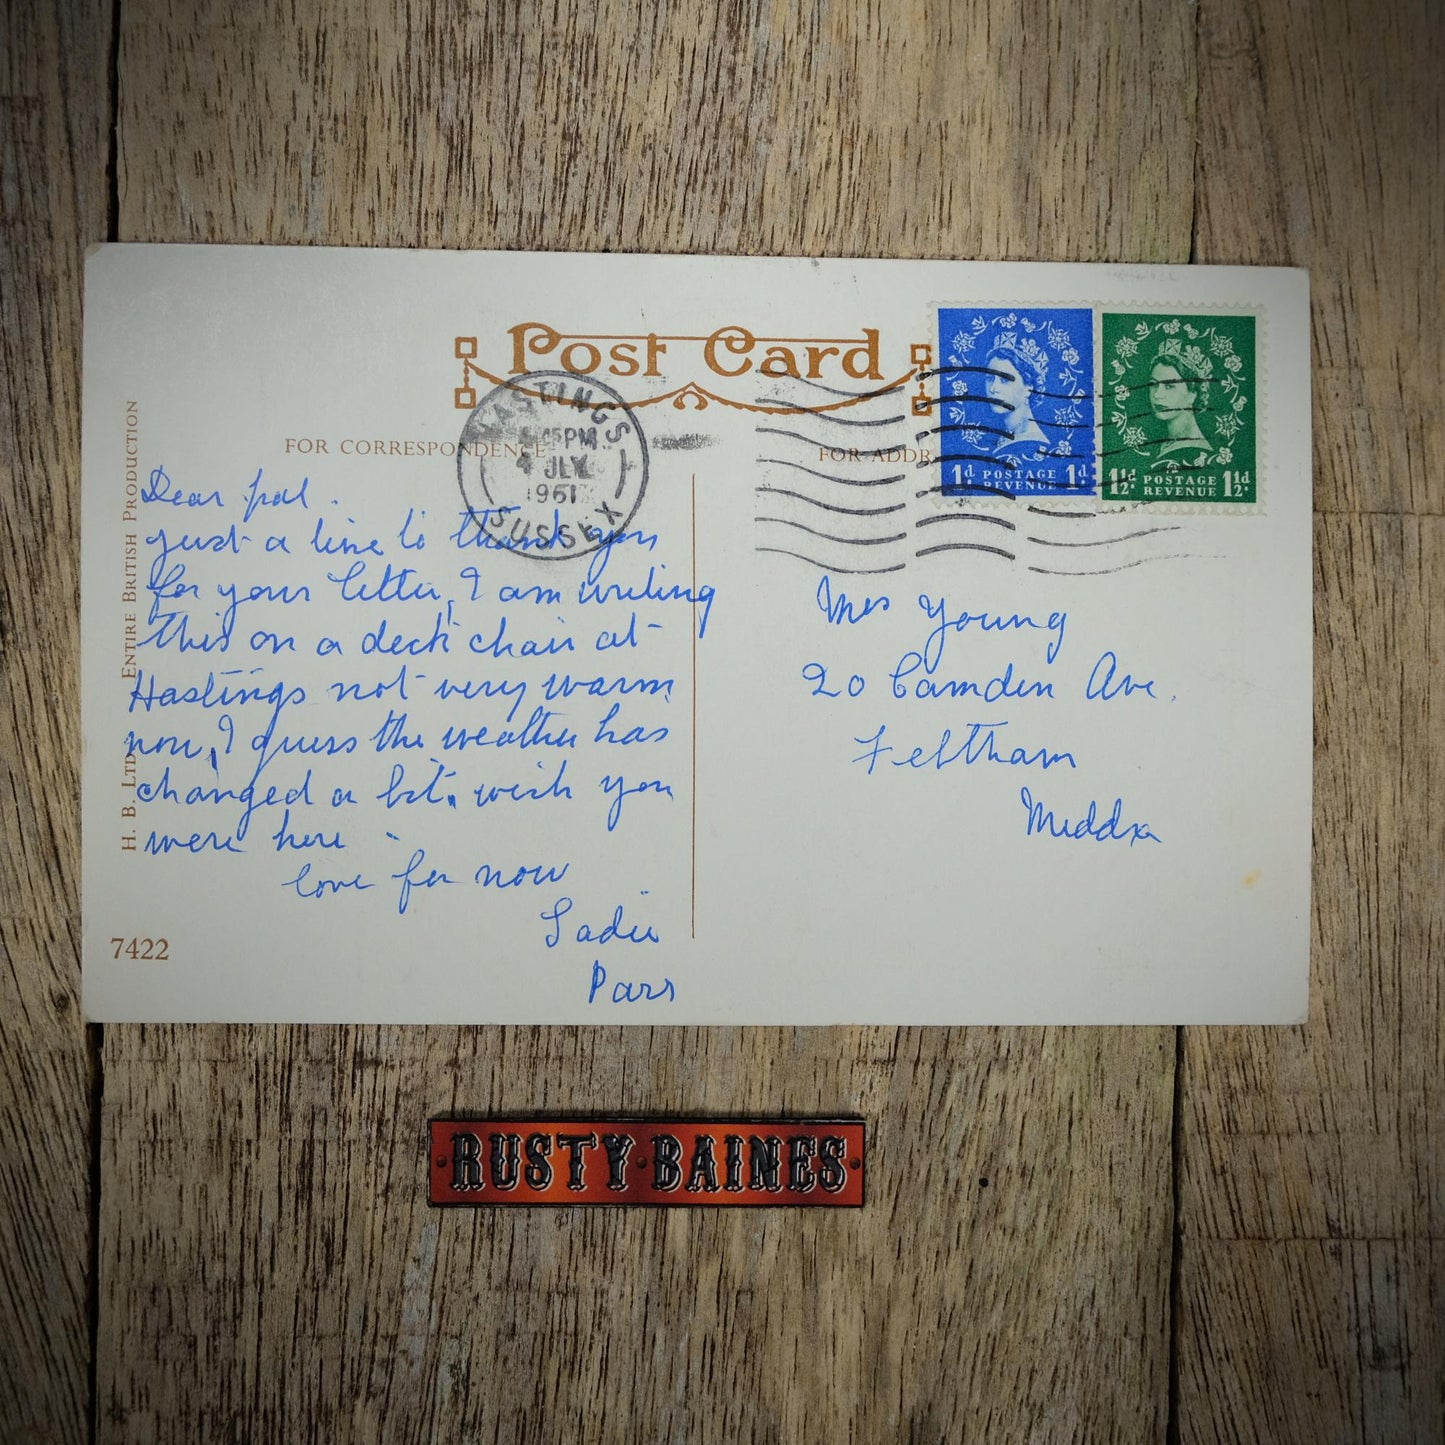 Post Card
FOR CORRESPONDENCE
FOR ADDR
HASTINGS
PM
4 JLY
1961
SUSSEX
1d POSTAGE REVENUE 1d
1½d POSTAGE REVENUE 1½d
H. B. LTD. ENTIRE BRITISH PRODUCTION
Dear pal.
just a line to thank you
for your letter, I am writing
this on a deck chair at
Hastings not very warm
now, I guess the weather has
changed a bit. wish you
were here -
love for now
Sadie
Pars
7422
Mrs Young
20 Camden Ave.
Feltham
Middx
RUSTY BAINES